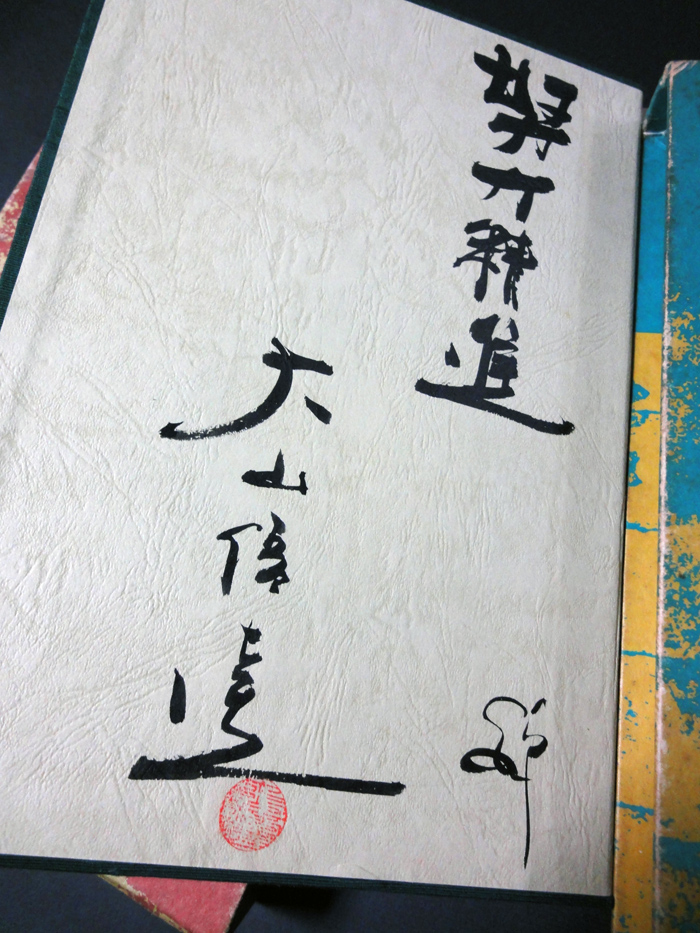 努力精進
大山倍達